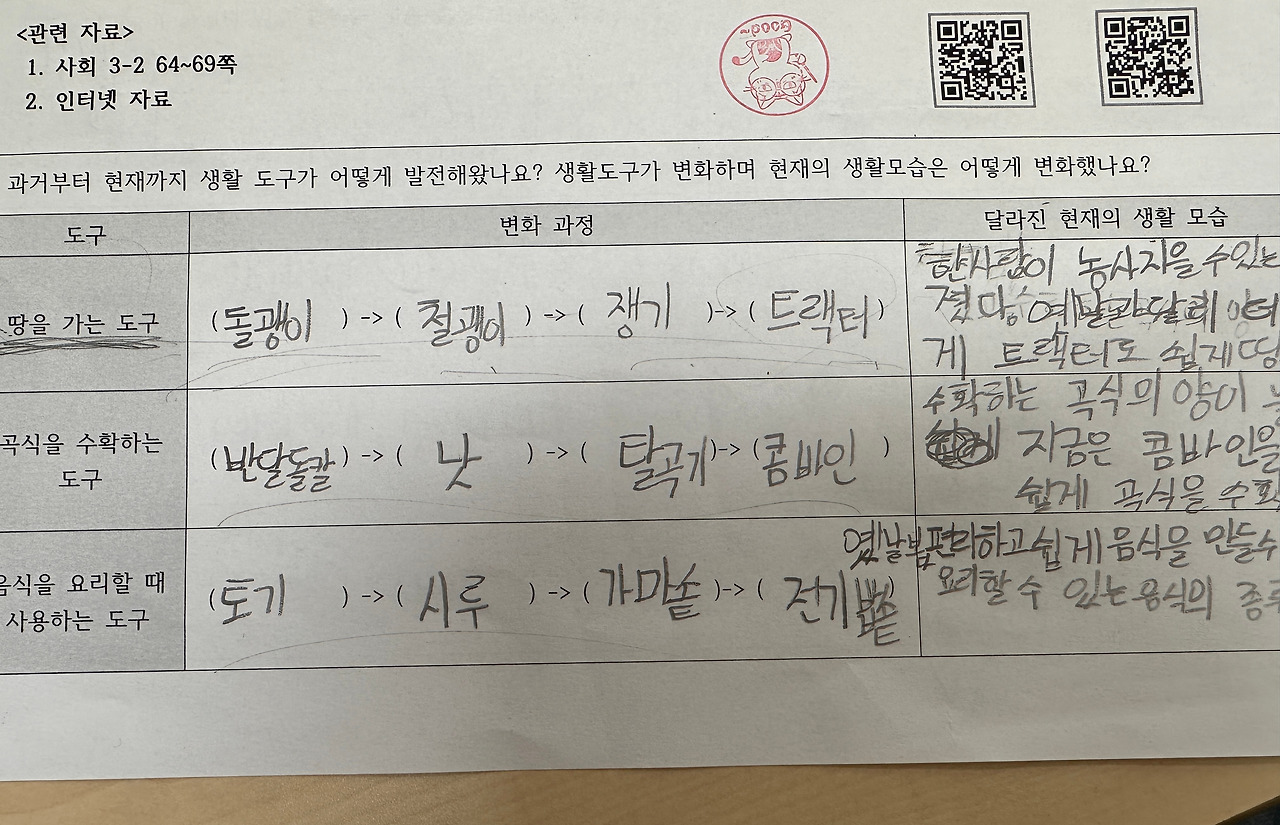 <관련 자료>
1. 사회 3-2 64~69쪽
2. 인터넷 자료
~poca
과거부터 현재까지 생활 도구가 어떻게 발전해왔나요? 생활도구가 변화하며 현재의 생활모습은 어떻게 변화했나요?
도구 변화 과정 달라진 현재의 생활 모습
땅을 가는 도구
(돌괭이 ) -> ( 철괭이 ) -> ( 쟁기 )-> ( 트랙터)
한사람이 농사지을 수있는
게 트랙터로 쉽게
곡식을 수확하는
도구
(반달돌칼) -> ( 낫 ) -> ( 탈곡기)-> (콤바인 )
수확하는 곡식의 양이
지금은 콤바인을
쉽게 곡식을
음식을 요리할 때
사용하는 도구
(토기 ) -> ( 시루 ) -> ( 가마솥 )-> ( 전기밥솥
편리하고 쉽게 음식을 만들수
요리할 수 있는 음식의